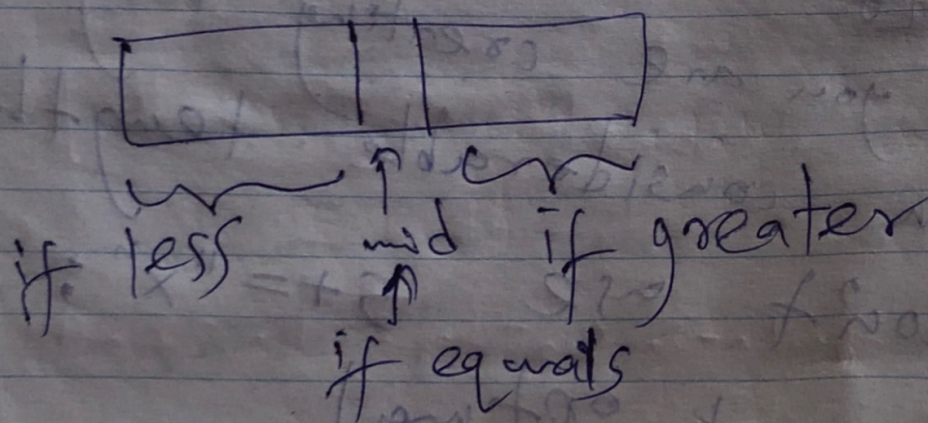 if less mid if greater
if equals